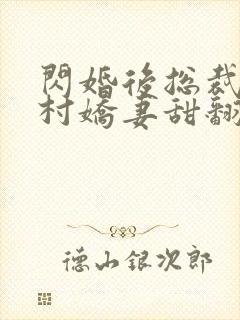 閃婚後総裁
村嬌妻甜翻
德山銀次郎